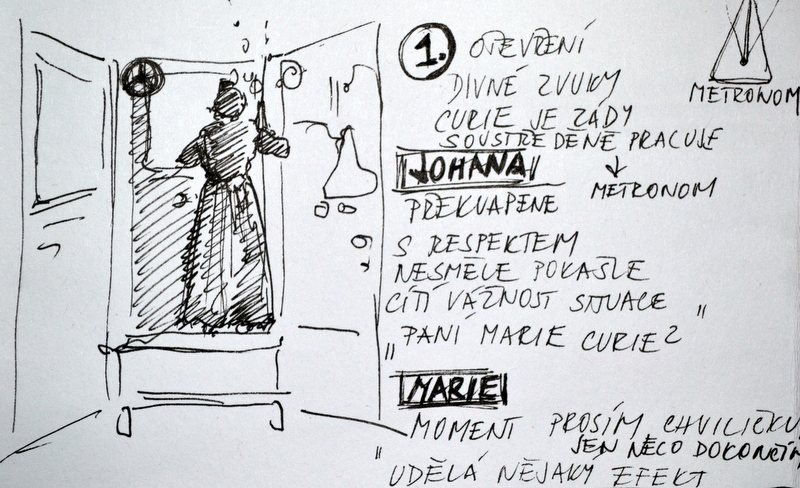 1. OTEVŘENÍ
DIVNÉ ZVUKY
CURIE JE ZÁDY
SOUSTŘEDĚNĚ PRACUJE
METRONOM
METRONOM
JOHANA
PŘEKVAPENE
S RESPEKTEM
NESMĚLE POKAŠLE
CÍTÍ VÁŽNOST SITUACE
"PANÍ MARIE CURIE?"
MARIE
MOMENT PROSÍM CHVILIČKU
JEN NĚCO DOKONČÍM
"UDĚLÁ NĚJAKÝ EFEKT